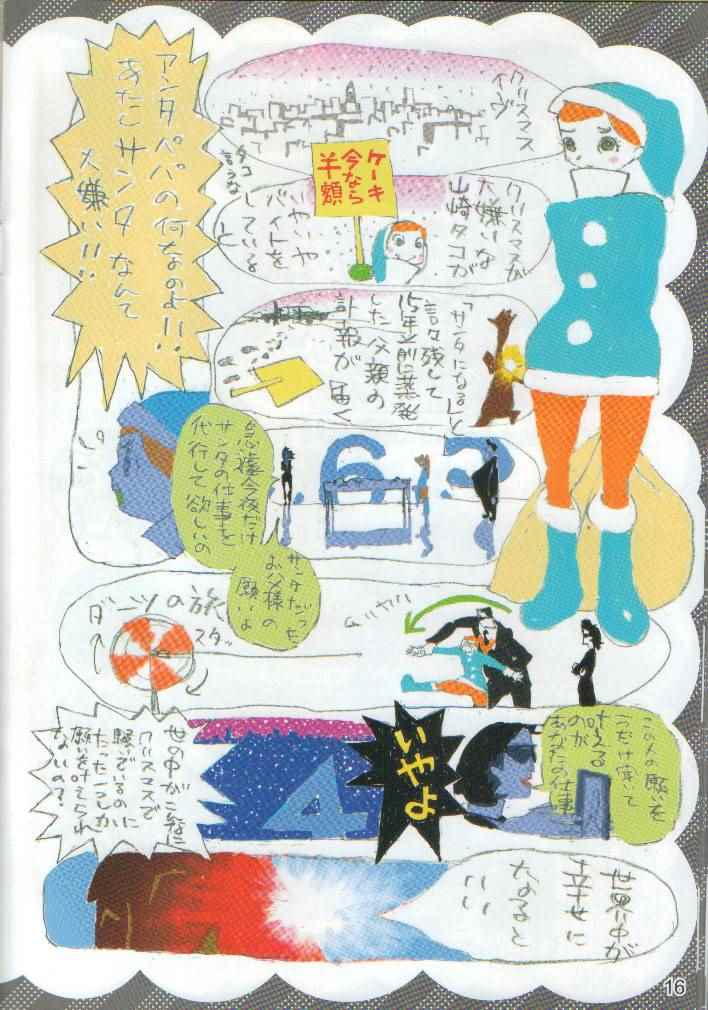 クリスマス
イヴ
クリスマスが
大嫌いな
山崎タコが
いやいや
バイトを
している
ケーキ
今なら
半額
タコ
言うな
「サンタになる」と
言い残して
15年前に蒸発
した父親の
訃報が届く
アンタパパの何なのよ!!
あたしサンタなんて
大嫌い!!
急遽今夜だけ
サンタの仕事を
代行して欲しいの
サンタだった
お父様の
願いよ
ダーツの旅
スタッ
この人の願いを
1つだけ聞いて
叶える
のが
あなたの仕事
いやよ
世の中がこんなに
クリスマスで
騒いでいるのに
たった一つしか
願いを叶えられ
ないの?
世界中が
幸せに
なると
いい
16